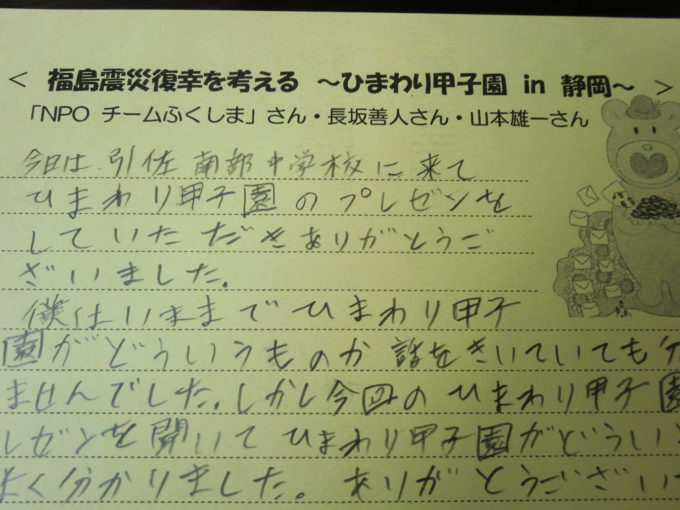 < 福島震災復幸を考える ～ひまわり甲子園 in 静岡～ >
「NPO チームふくしま」さん・長坂善人さん・山本雄一さん
今日は、引佐南部中学校に来て
ひまわり甲子園のプレゼンを
していただきありがとうご
ざいました。
僕はいままでひまわり甲子
園がどういうものか話をきいていても分
ませんでした。しかし今回のひまわり甲子園
レゼンを聞いてひまわり甲子園がどういい
よく分かりました。ありがとうございま